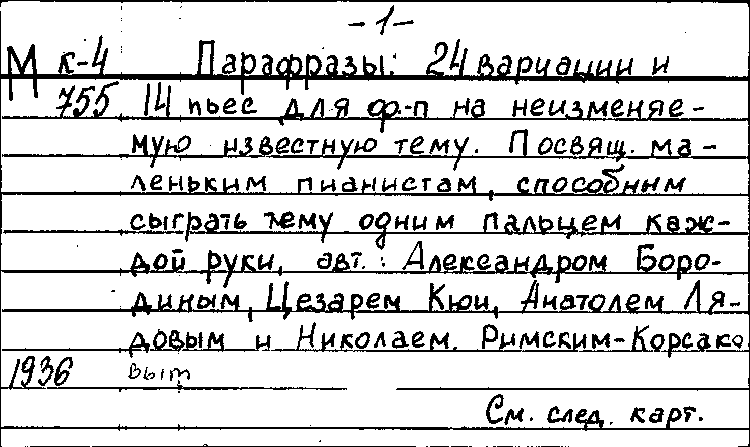 -1-
М к-4 Парафразы: 24 вариации и
755 14 пьес для ф.-п на неизменяе-
мую известную тему. Посвящ. ма-
леньким пианистам, способным
сыграть тему одним пальцем каж-
дой руки, авт.: Александром Боро-
диным, Цезарем Кюи, Анатолем Ля-
довым и Николаем. Римским-Корсако
1936 вым
См. след. карт.